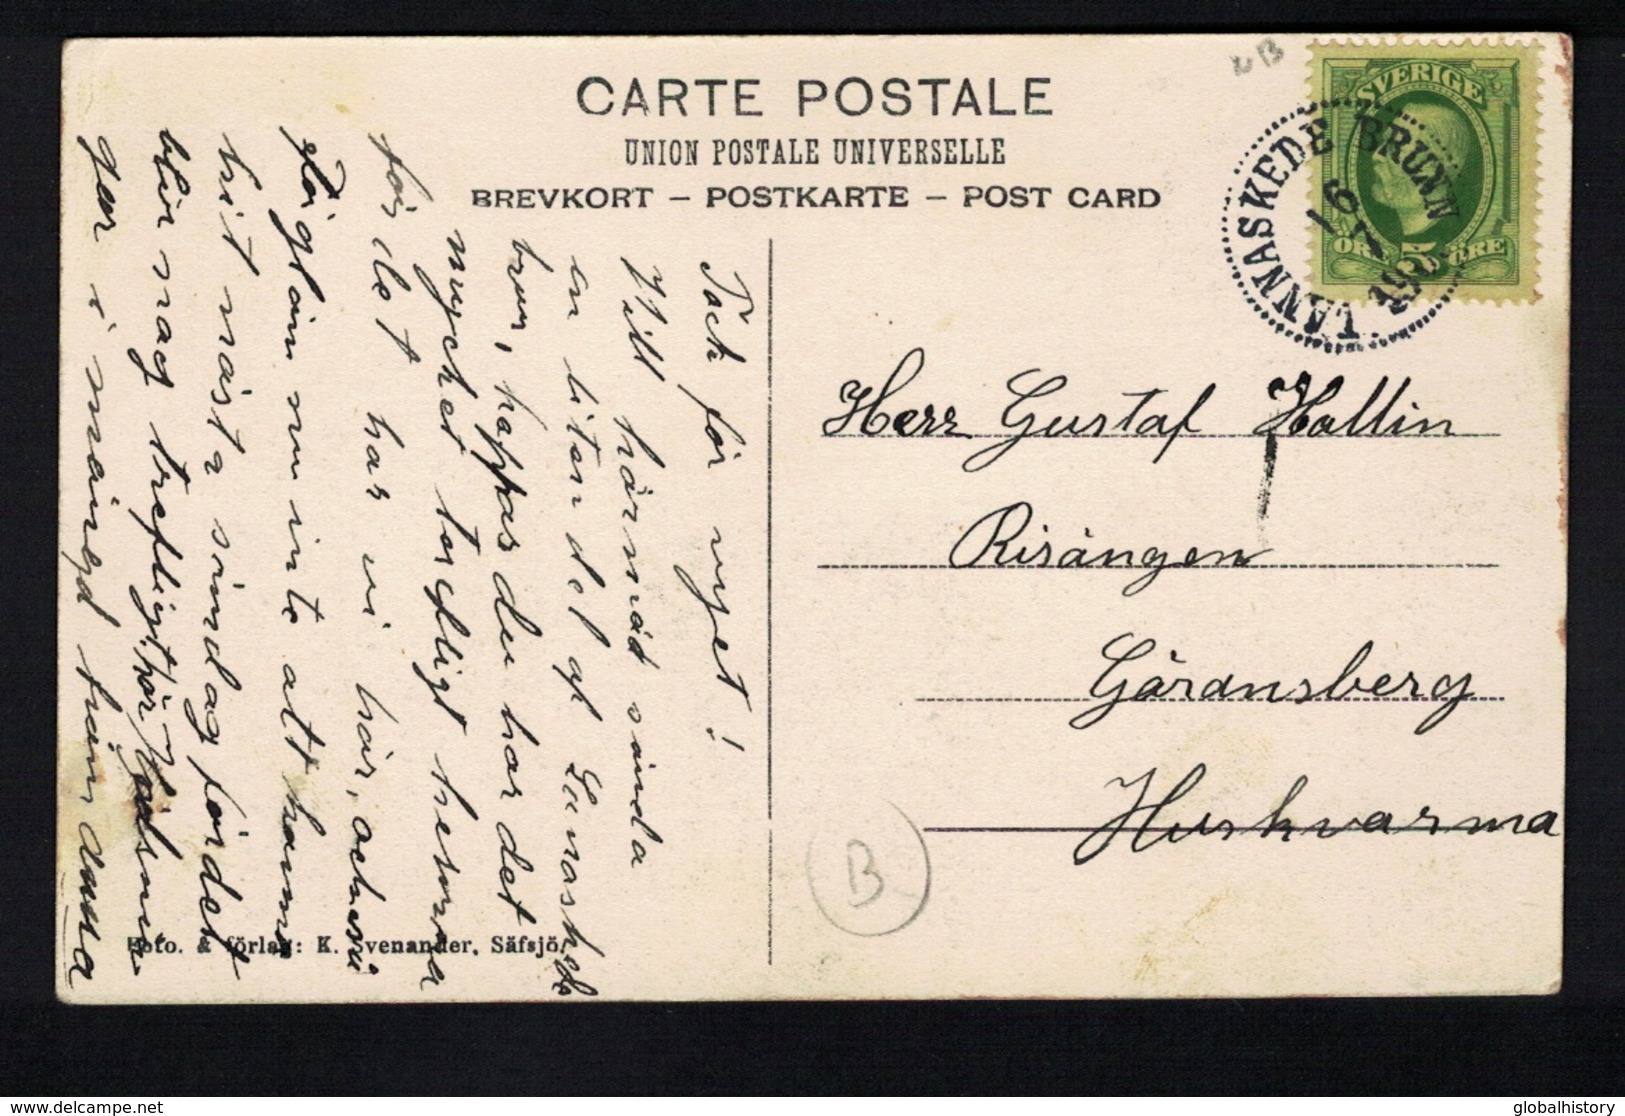 CARTE POSTALE
UNION POSTALE UNIVERSELLE
BREVKORT – POSTKARTE – POST CARD
SVERIGE
ÖRE 5 ÖRE
LANNASKEDE BRUNN
16
7
NB
Tack för vyet!
Vill härmed sända
en liten del af Lanaskede
brun, hoppas du har det
mycket trefligt hemma
för det har vi här,
Högtän nu inte att komma
hit nästa söndag för det
blir nog trefligt här
gör i mängd från Anna
Herr Gustaf Hallin
Risången
Göransberg
Huskvarna
B
Foto. & förlag: K. Svenander, Säfsjö.
delcampe.net
globalhistory